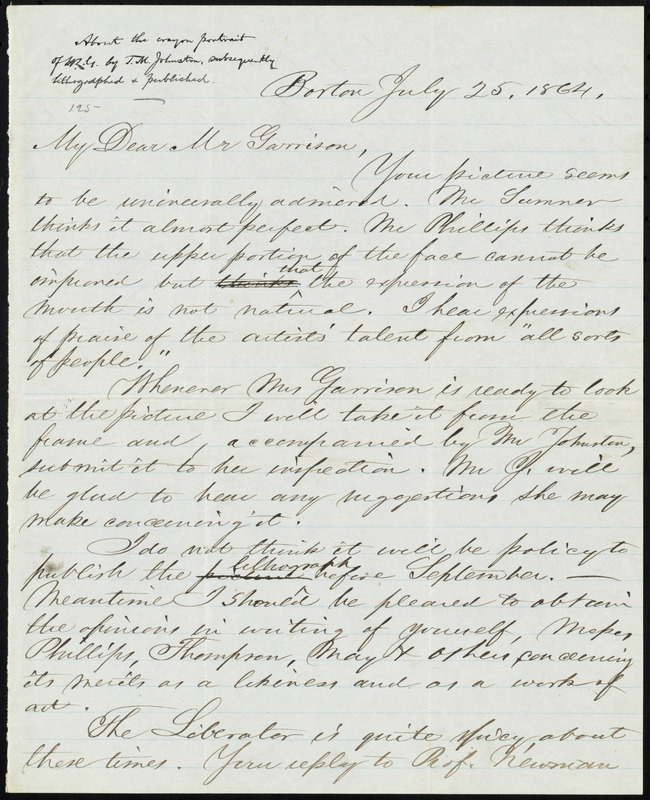 About the crayon portrait
of W.L.G. by T.M. Johnston, subsequently
lithographed & published.
125
Boston July 25, 1864.
My Dear Mr Garrison,
Your picture seems
to be universally admired. Mr Sumner
thinks it almost perfect. Mr Phillips thinks
that the upper portion of the face cannot be
improved but thinks that the expression of the
mouth is not natural. I hear expressions
of praise of the artists' talent from "all sorts
of people."
Whenever Mrs Garrison is ready to look
at the picture I will take it from the
frame and, accompanied by Mr Johnston,
submit it to her inspection. Mr J. will
be glad to hear any suggestions she may
make concerning it.
I do not think it will be policy to
publish the picture lithograph before September. —
Meantime I should be pleased to obtain
the opinions in writing of yourself, Messrs
Phillips, Thompson, May & others concerning
its merits as a likeness and as a work of
art.
The Liberator is quite spicy about
these times. Your reply to Prof. Newman